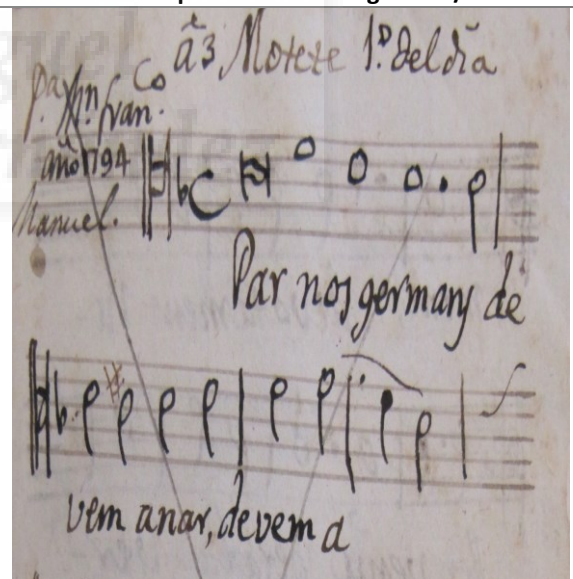 à 3 Motete 1.º del dia
P.ª Sn. Fran.co
año 1794
Manuel.
Par nos germans de
vem anar, devem a